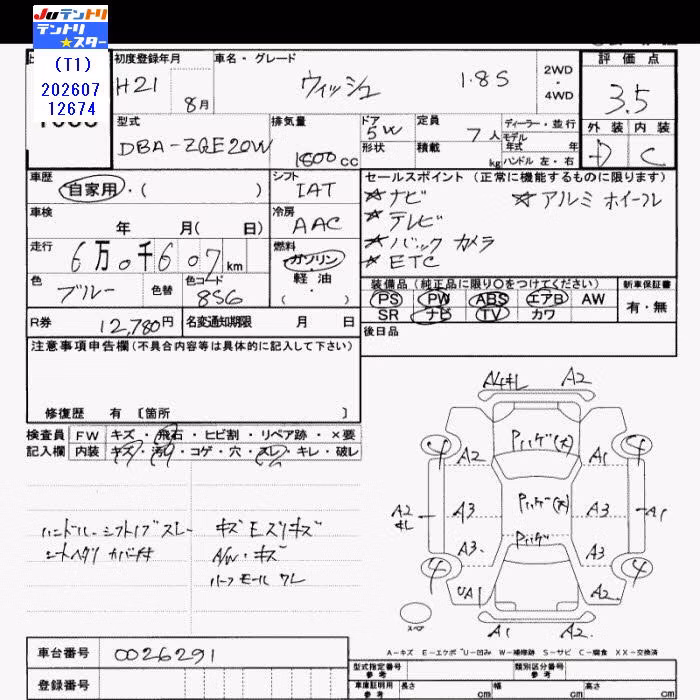 JUテントリ
テントリ
★スター
(T1)
202607
12674
初度登録年月 車名・グレード 2WD・4WD 評価点
H21 8月 ウィッシュ 1.8S 3.5
型式 排気量 ドア 定員 ディーラー・並行 外装 内装
DBA-ZGE20W 1800cc 5W 7人 モデル年式 年式
形状 積載 kg ハンドル 左・右 D C
車歴 シフト セールスポイント(正常に機能するものに限ります)
自家用・( ) IAT ☆ナビ ☆アルミホイール
車検 冷房 ☆テレビ
年 月( 日) AAC ☆バックカメラ
走行 燃料 ☆ETC
6万0千607km ガソリン
軽油
( ・ )
色 色替 色コード 装備品(純正品に限り○をつけてください) 新車保証書
ブルー 8S6 PS PW ABS エアB AW 有・無
R券 12,780円 名変通知期限 月 日 SR ナビ TV カワ
注意事項申告欄(不具合内容等は具体的に記入して下さい) 後日品
修復歴 有 〔箇所 〕
検査員 FW キズ・飛石・ヒビ割・リペア跡・×要
記入欄 内装 キズ・汚れ・コゲ・穴・スレ・キレ・破レ
A4キレ A2
4 A2 A1 4
A2 キレ A3 A3 A1
A3 A3
4 UA1 A2 4
A1 A2
スペア
ハンドル シフトノブ スレ キズ
A/W・キズ
A-キズ E-エクボ U-凹み W-補修跡 S-サビ C-腐食 XX-交換済
車台番号 0026291 型式指定番号 参考 類別区分番号 参考
登録番号 車庫証明用 参考 長さ cm 幅 cm 高さ cm